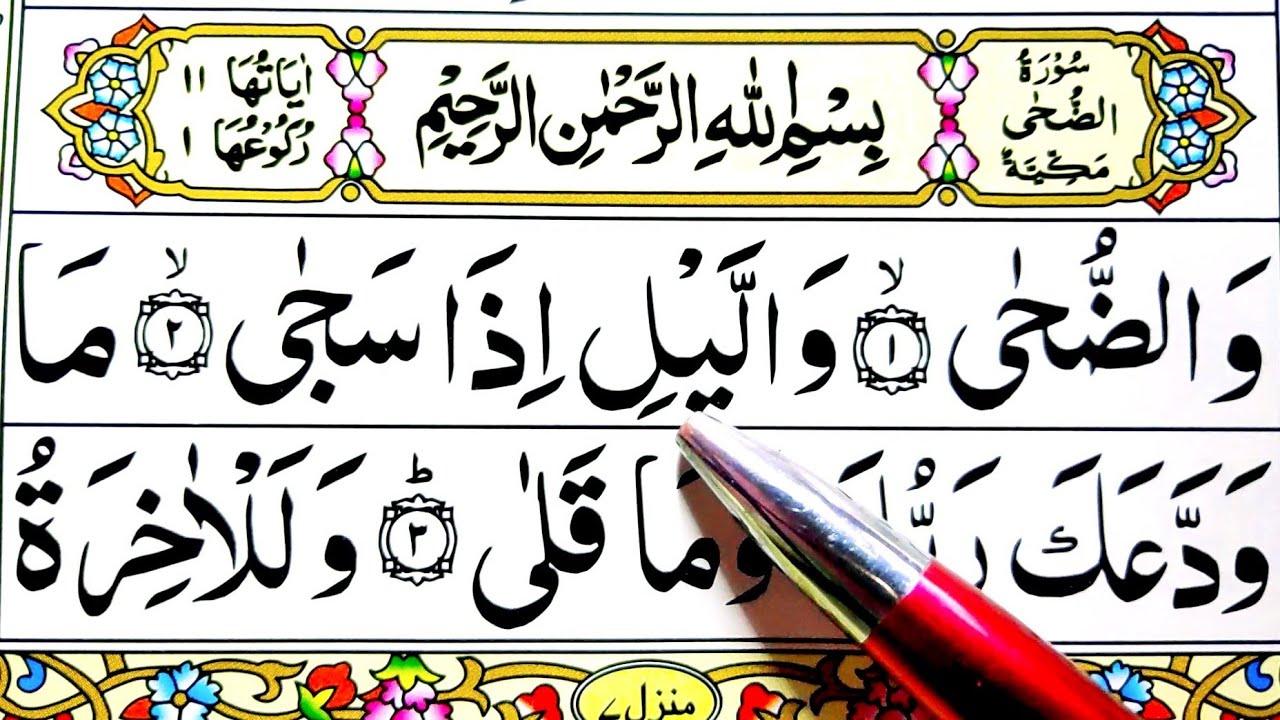 سُوْرَةُ
الضُّحٰى
مَكِّيَّةٌ
بِسْمِ اللّٰهِ الرَّحْمٰنِ الرَّحِيْمِ
اٰيَاتُهَا ١١
رُكُوْعُهَا ١
وَالضُّحٰى ۙ﴿١﴾ وَالَّيْلِ اِذَا سَجٰى ۙ﴿٢﴾ مَا
وَدَّعَكَ وَمَا قَلٰى ؕ﴿٣﴾ وَلَلْاٰخِرَةُ
منزل ٧